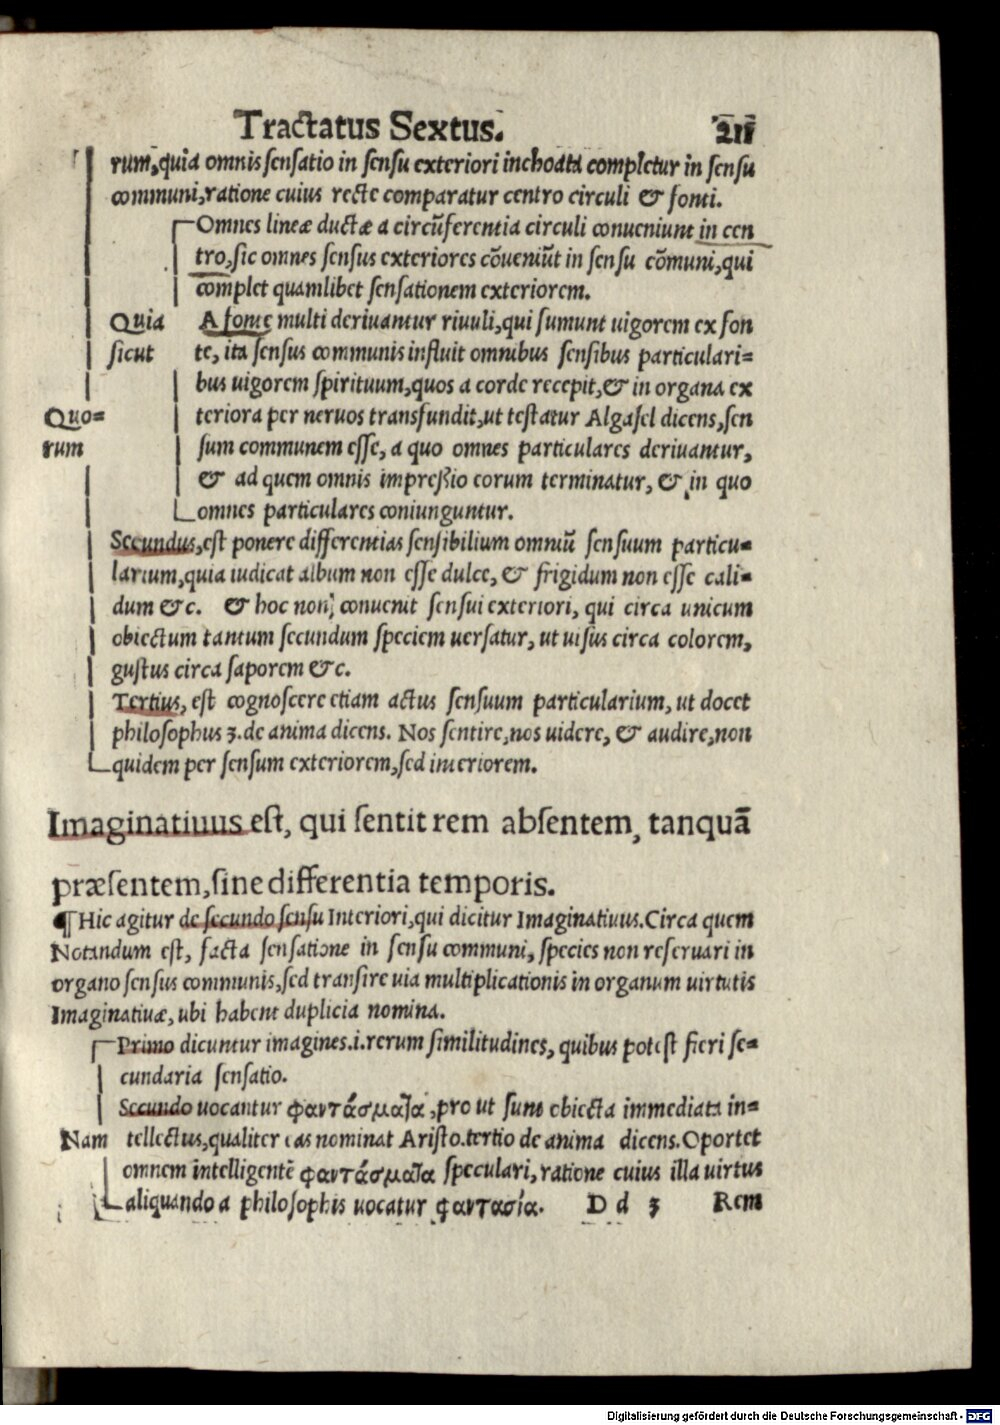 Tractatus Sextus. 211
rum, quia omnis sensatio in sensu exteriori inchoata completur in sensu
communi, ratione cuius recte comparatur centro circuli & fonti.
Omnes lineæ ductæ a circūferentia circuli conueniunt in cen
tro, sic omnes sensus exteriores cōueniūt in sensu cōmuni, qui
complet quamlibet sensationem exteriorem.
Quia A fonte multi deriuantur riuuli, qui sumunt uigorem ex fon
sicut te, ita sensus communis influit omnibus sensibus particulari=
bus uigorem spirituum, quos a corde recepit, & in organa ex
Quo= teriora per neruos transfundit, ut testatur Algasel dicens, sen
rum sum communem esse, a quo omnes particulares deriuantur,
& ad quem omnis impreßio eorum terminatur, & in quo
omnes particulares coniunguntur.
Secundus, est ponere differentias sensibilium omniū sensuum particu=
larium, quia iudicat album non esse dulce, & frigidum non esse cali=
dum &c. & hoc non conuenit sensui exteriori, qui circa unicum
obiectum tantum secundum speciem uersatur, ut uisus circa colorem,
gustus circa saporem &c.
Tertius, est cognoscere etiam actus sensuum particularium, ut docet
philosophus 3. de anima dicens. Nos sentire, nos uidere, & audire, non
quidem per sensum exteriorem, sed interiorem.
Imaginatiuus est, qui sentit rem absentem, tanquā
præsentem, sine differentia temporis.
¶ Hic agitur de secundo sensu Interiori, qui dicitur Imaginatiuus. Circa quem
Notandum est, facta sensatione in sensu communi, species non reseruari in
organo sensus communis, sed transire uia multiplicationis in organum uirtutis
Imaginatiuæ, ubi habent duplicia nomina.
Primo dicuntur imagines .i. rerum similitudines, quibus potest fieri se=
cundaria sensatio.
Secundo uocantur φαντάσματα, pro ut sunt obiecta immediata in=
Nam tellectus, qualiter eas nominat Aristo. tertio de anima dicens. Oportet
omnem intelligentē φαντάσματα speculari, ratione cuius illa uirtus
aliquando a philosophis uocatur φαντασία. D d 3 Rem
Digitalisierung gefördert durch die Deutsche Forschungsgemeinschaft - DFG